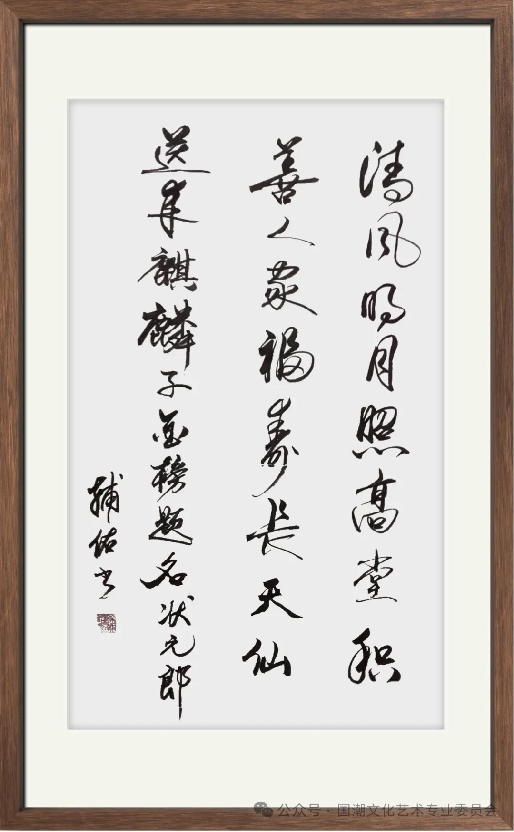 清风明月照高堂积
善人家福寿长天仙
送来麒麟子金榜题名状元郎
辅佑书
公众号·国潮文化艺术专业委员会